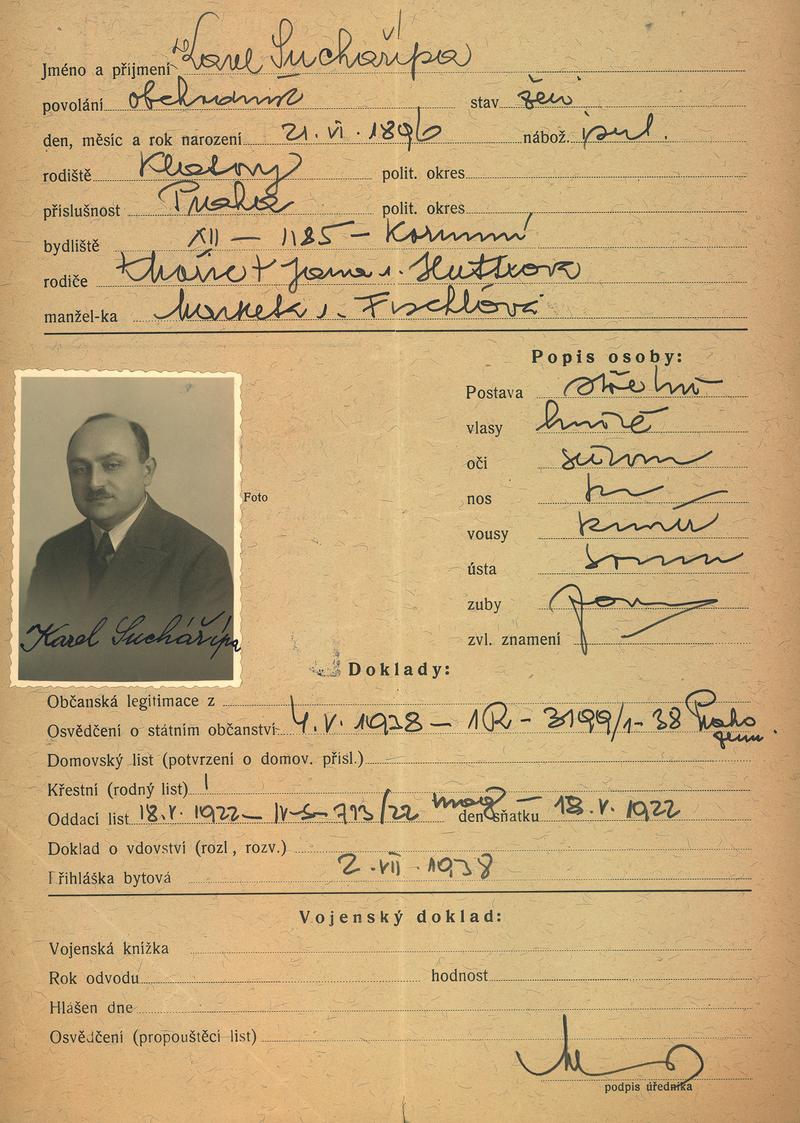 Jméno a příjmení Karel Suchařípa
povolání obchodník stav žen.
den, měsíc a rok narození 21. VI. 1896 nábož.
rodiště Klatovy polit. okres
příslušnost Praha polit. okres
bydliště XII – 1185 – Korunní
rodiče
manžel-ka Marketa r. Fischlová
Popis osoby:
Postava střední
vlasy hnědé
oči
nos
vousy
ústa
zuby
zvl. znamení
Foto
Karel Suchařípa
Doklady:
Občanská legitimace z
Osvědčení o státním občanství 4. V. 1938 – 1R – 3199/1-38 Praha
Domovský list (potvrzení o domov. přísl.)
Křestní (rodný list)
Oddací list 18. V. 1922 – IV-S-713/22 den sňatku 18. V. 1922
Doklad o vdovství (rozl, rozv.)
Přihláška bytová 2. VII. 1938
Vojenský doklad:
Vojenská knížka
Rok odvodu hodnost
Hlášen dne
Osvědčení (propouštěcí list)
podpis úředníka